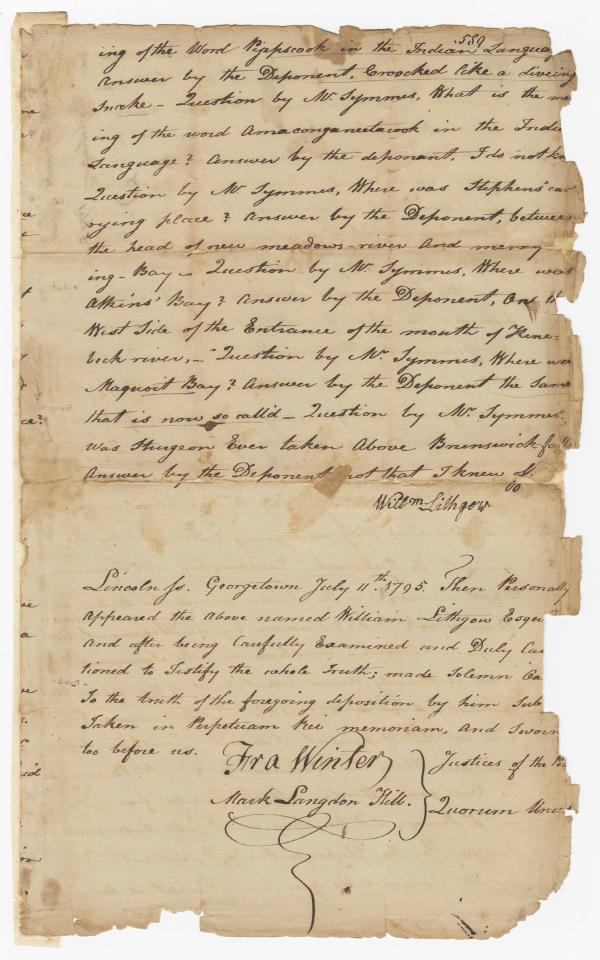 589
ing of the Word Pippscook in the Indian Languag
Answer by the Deponent, Croocked like a diveing
Snake – Question by Mr. Symmes, What is the me
ing of the word Amaconganeetacook in the Indi
Language? Answer by the deponant, I do not kn
Question by Mr Symmes, Where was Stephens' car
rying place? Answer by the Deponent, between
the head of new meadows-river and merry
ing-Bay – Question by Mr. Symmes, Where was
Atkins' Bay? Answer by the Deponent, On th
West Side of the Entrance of the mouth of Kene=
beck river, – Question by Mr. Symmes, Where wa
Maquoit Bay? Answer by the Deponent the Same
that is now so calld – Question by Mr. Symmes.
was Sturgeon Ever taken Above Brunswick-fa
Answer by the Deponent not that I knew of.
Willm. Lithgow
Lincoln Ss. Georgetown July 11th. 1795. Then Personally
appeared the above named William Lithgow Esqu
and after being Carefully Examined and Duly Cau
tioned to Testify the whole Truth; made Solemn Oa
To the truth of the foregoing deposition by him Sub
Taken in Perpetuam Rei memoriam, and Sworn
too before us.
Fra Winter
Mark Langdon Hill.
Justices of the Pe
Quorum Unus